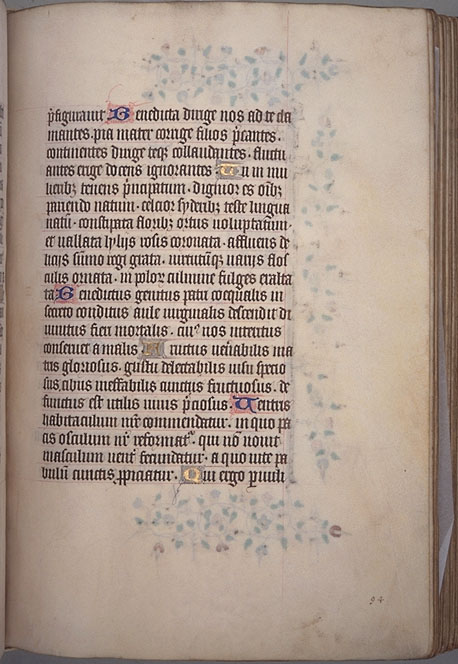 p̄figurauit Benedicta dirige nos ad te cla
mantes. pia mater corrige filios p̄cantes.
continentes dirige teqꝫ collaudantes. fluctu
antes erige docens ignorantes. Tu in mu
lieribꝫ tenens p̄ncipatum. dignior es oībꝫ
pariendo natum. celcior syderibꝫ teste lingua
natū. constipata floribꝫ ortus voluptatum.
et vallata lylijs rosis coronata. affluens de
licijs sūmo regi grata. virtutūqꝫ varijs flos
culis ornata. in polor culmine fulges exalta
ta Benedictus genitus patri coequalis in
secreto conditus aule virginalis descendit di
uinitus fieri mortalis. cuiꝰ nos intertus
conseruet a malis. Fructus ven̄abilis ma
tris gloriosus. gustu delectabilis visu specio
sus cibus ineffabilis cunctis fructuosus. de
functis est utilis viuis p̄ciosus Uentris
habitaculum iure commendatur. in quo pa
cis osculum nr̄ reformatʳ. qui nō nouit
masculum ventʳ fecundatur. a quo vite pa
bulū cunctis ꝓpiciatur. Qui ergo p̄iuili
94